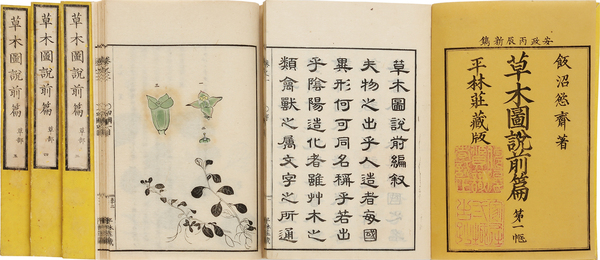 安政丙辰新鐫
飯沼慾齋著
草木圖說前篇 第一帙
平林莊藏版
草木圖說前編叙
夫物之出乎人造者每國
異形何可同名稱乎若出
乎陰陽造化者雖艸木之
類禽獸之属文字之所通
一
二
草木圖說前篇 草部 三
草木圖說前篇 草部 四
草木圖說前篇 草部 五